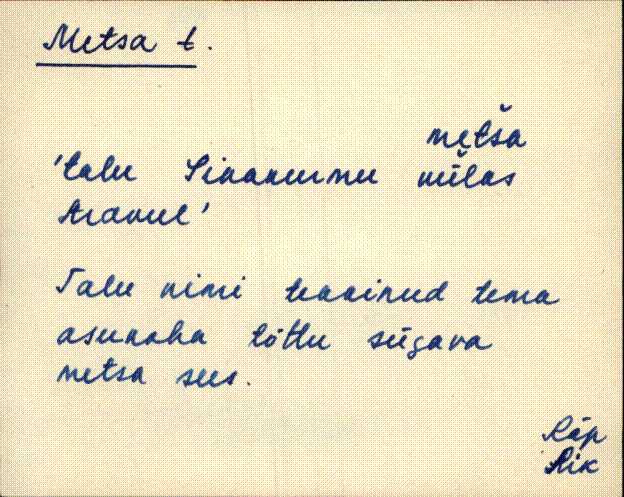 Metsa t.
metša
'talu Sikakurmu külas
Aravul'
Talu nimi tekkinud tema
asukoha tõttu sügava
metsa sees.
Räp
Rik